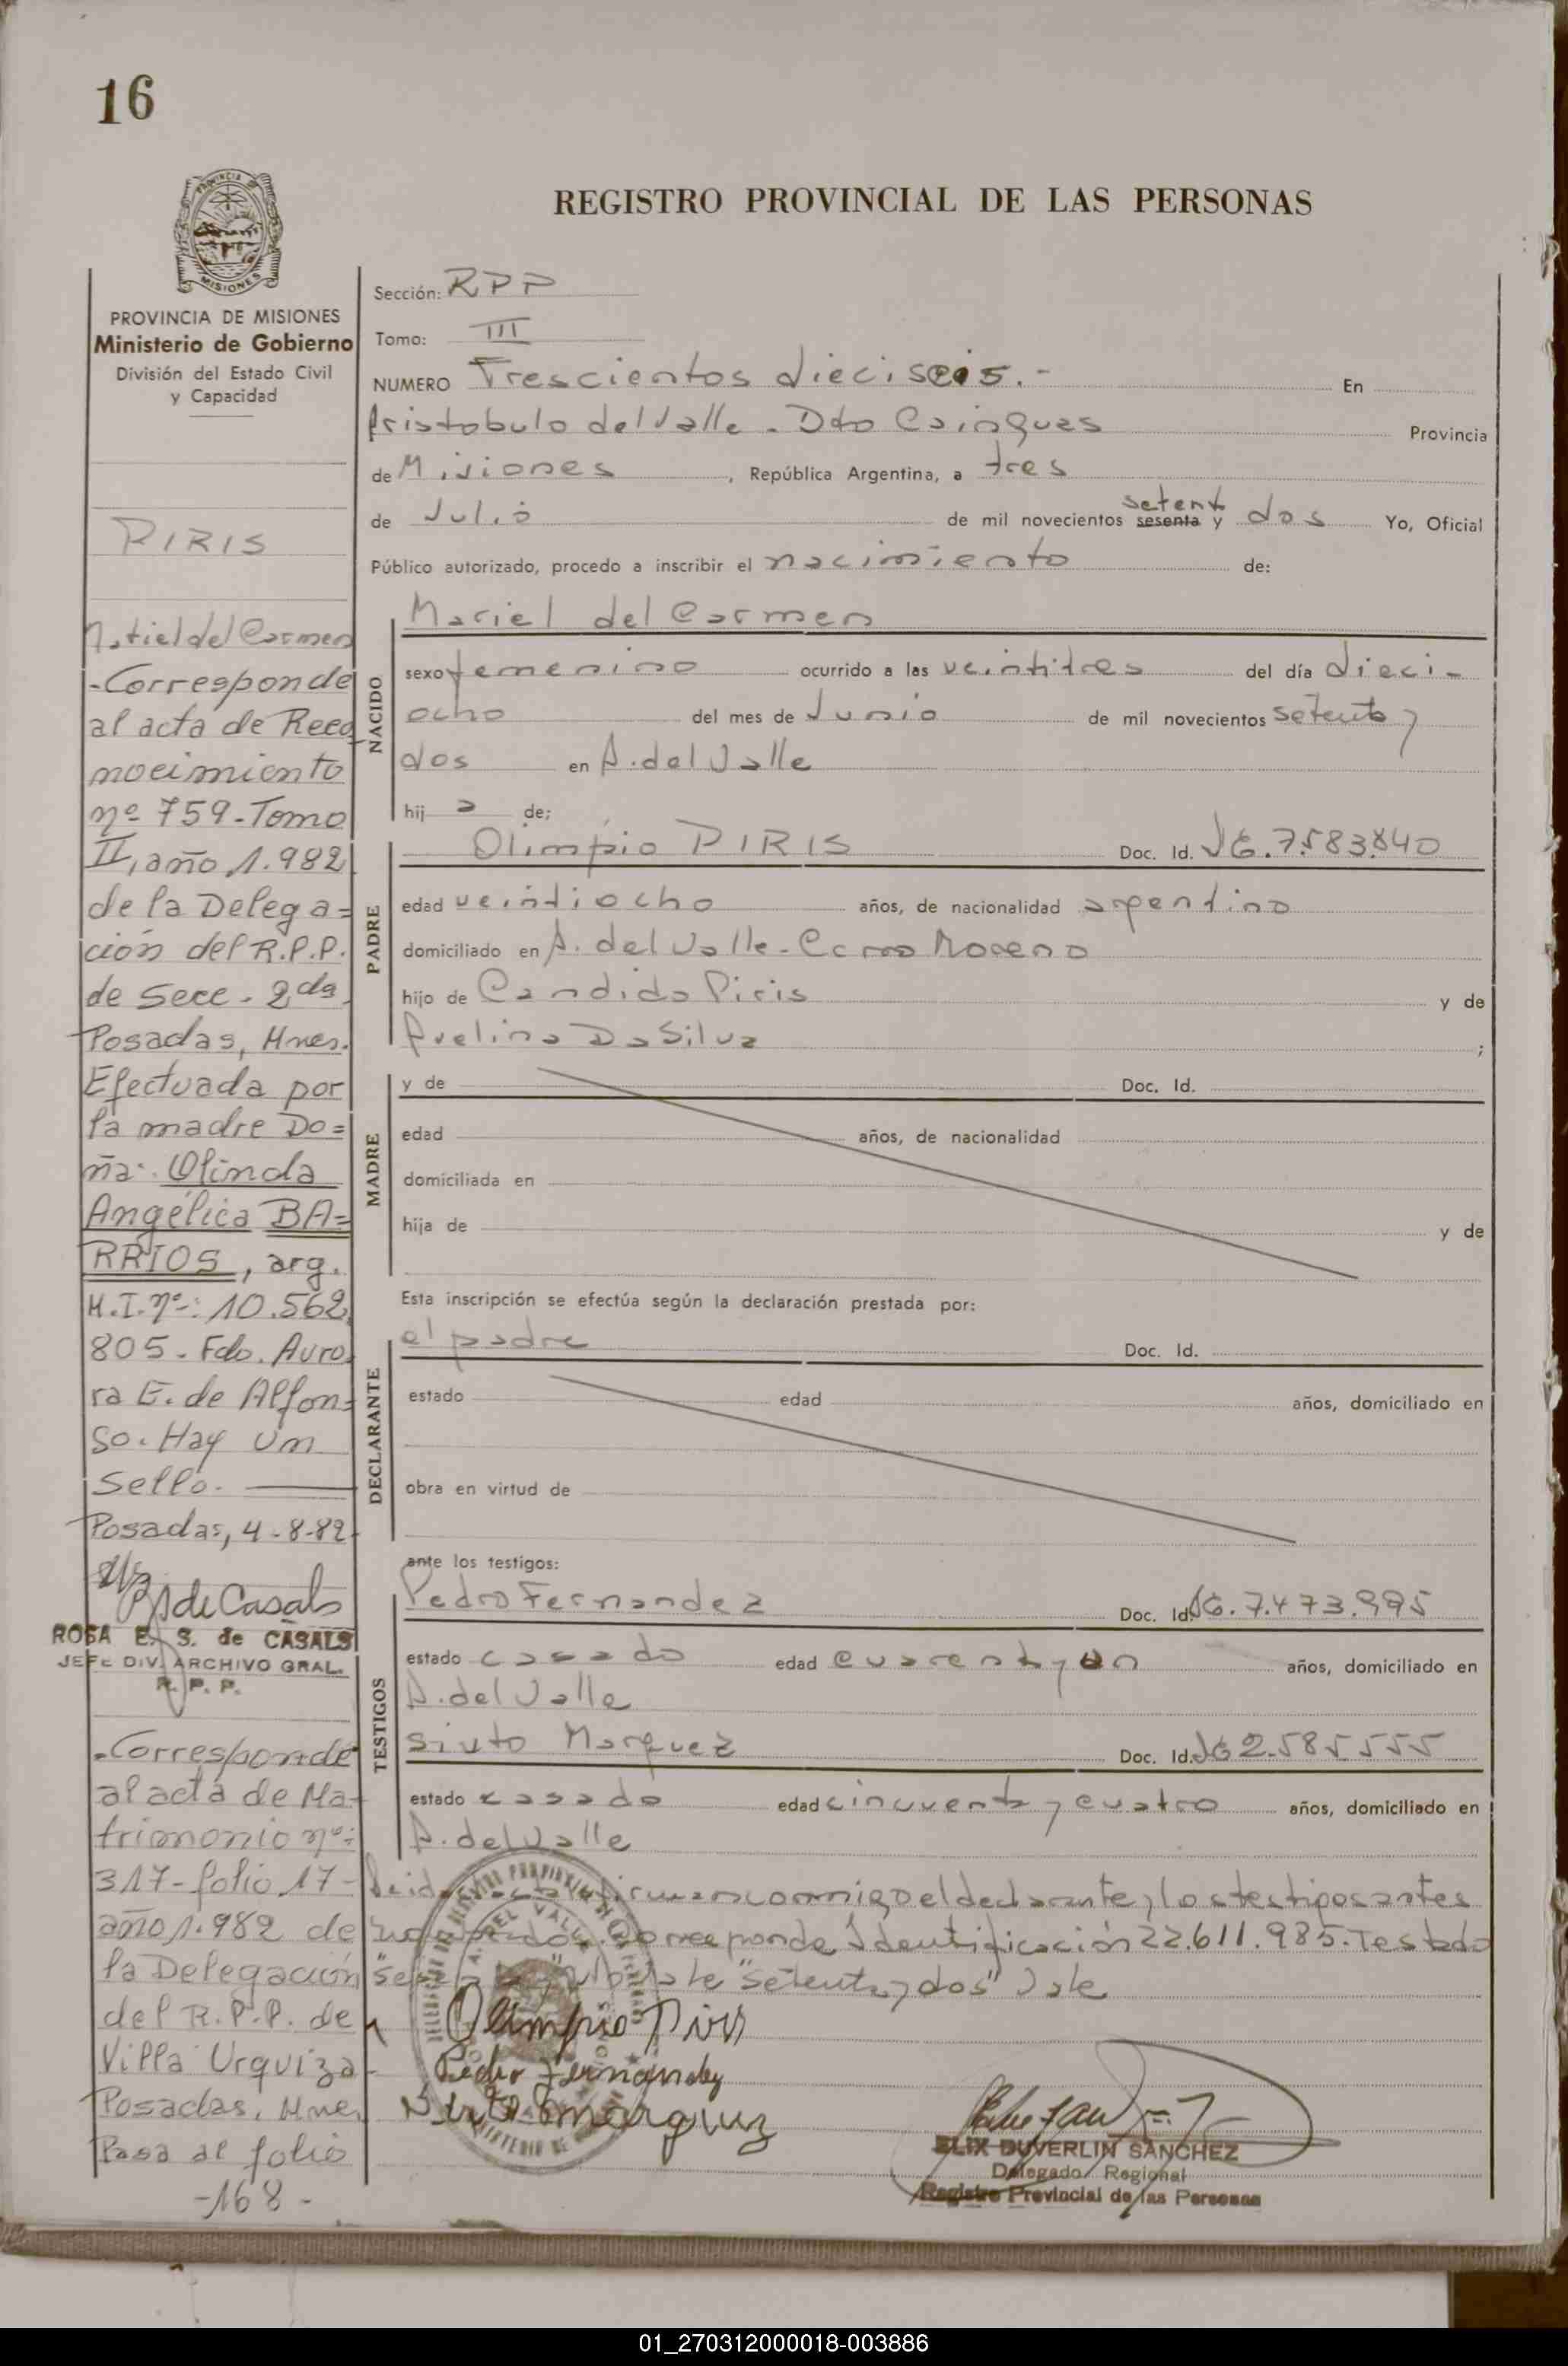 16
REGISTRO PROVINCIAL DE LAS PERSONAS
PROVINCIA
MISIONES
PROVINCIA DE MISIONES
Ministerio de Gobierno
División del Estado Civil
y Capacidad
PIRIS
del Carmen
-Corresponde
al acta de Reco
nocimiento
nº 759-Tomo
II, año 1.982
de la Delega=
ción del R.P.P.
de Secc. 2da
Posadas, Mnes.
Efectuada por
la madre Do=
ña: Olinda
Angélica BA=
RRIOS, arg.
M.I. nº: 10.562
805- Fdo. Auro
ra E. de Alfon=
so. Hay un
Sello.
Posadas, 4-8-82
de Casals
ROSA E. S. de CASALS
JEFE DIV. ARCHIVO GRAL.
R. P. P.
-Corresponde
al acta de Ma-
trimonio nº:
317-folio 17-
año 1.982 de
la Delegación
del R.P.P. de
Villa Urquiza-
Posadas, Mnes
Pasa al folio
-168-
Sección: RPP
Tomo: III
NUMERO Trescientos dieciseis.- En
Aristobulo del Valle - Dto Cainguas Provincia
de Misiones, República Argentina, a tres
setent
de Julio de mil novecientos sesenta y dos Yo, Oficial
Público autorizado, procedo a inscribir el nacimiento de:
NACIDO
Mariel del Carmen
sexo femenino ocurrido a las veintitres del día dieci-
ocho del mes de Junio de mil novecientos setenta y
dos en A. del Valle
hij a de;
PADRE
Olimpio PIRIS Doc. Id. 7.583.840
edad veintiocho años, de nacionalidad argentino
domiciliado en A. del Valle - Moreno
hijo de Candido Piris y de
Avelina Da Silva ;
MADRE
y de Doc. Id.
edad años, de nacionalidad
domiciliada en
hija de y de
Esta inscripción se efectúa según la declaración prestada por:
DECLARANTE
el padre Doc. Id.
estado edad años, domiciliado en
obra en virtud de
ante los testigos:
TESTIGOS
Pedro Fernandez Doc. Id. 7.473.995
estado casado edad cuarenta y un años, domiciliado en
A. del Valle
Sixto Marquez Doc. Id. 2.585555
estado casado edad cincuenta y cuatro años, domiciliado en
A. del Valle
conmigo el declarante y los testigos antes
corresponde Identificación 22.611.985. Testado
"setenta y dos" Vale
Olimpio Piris
Pedro Fernandez
Sixto Marquez
ELIX DUVERLIN SANCHEZ
Delegado Regional
Registro Provincial de las Personas
01_270312000018-003886